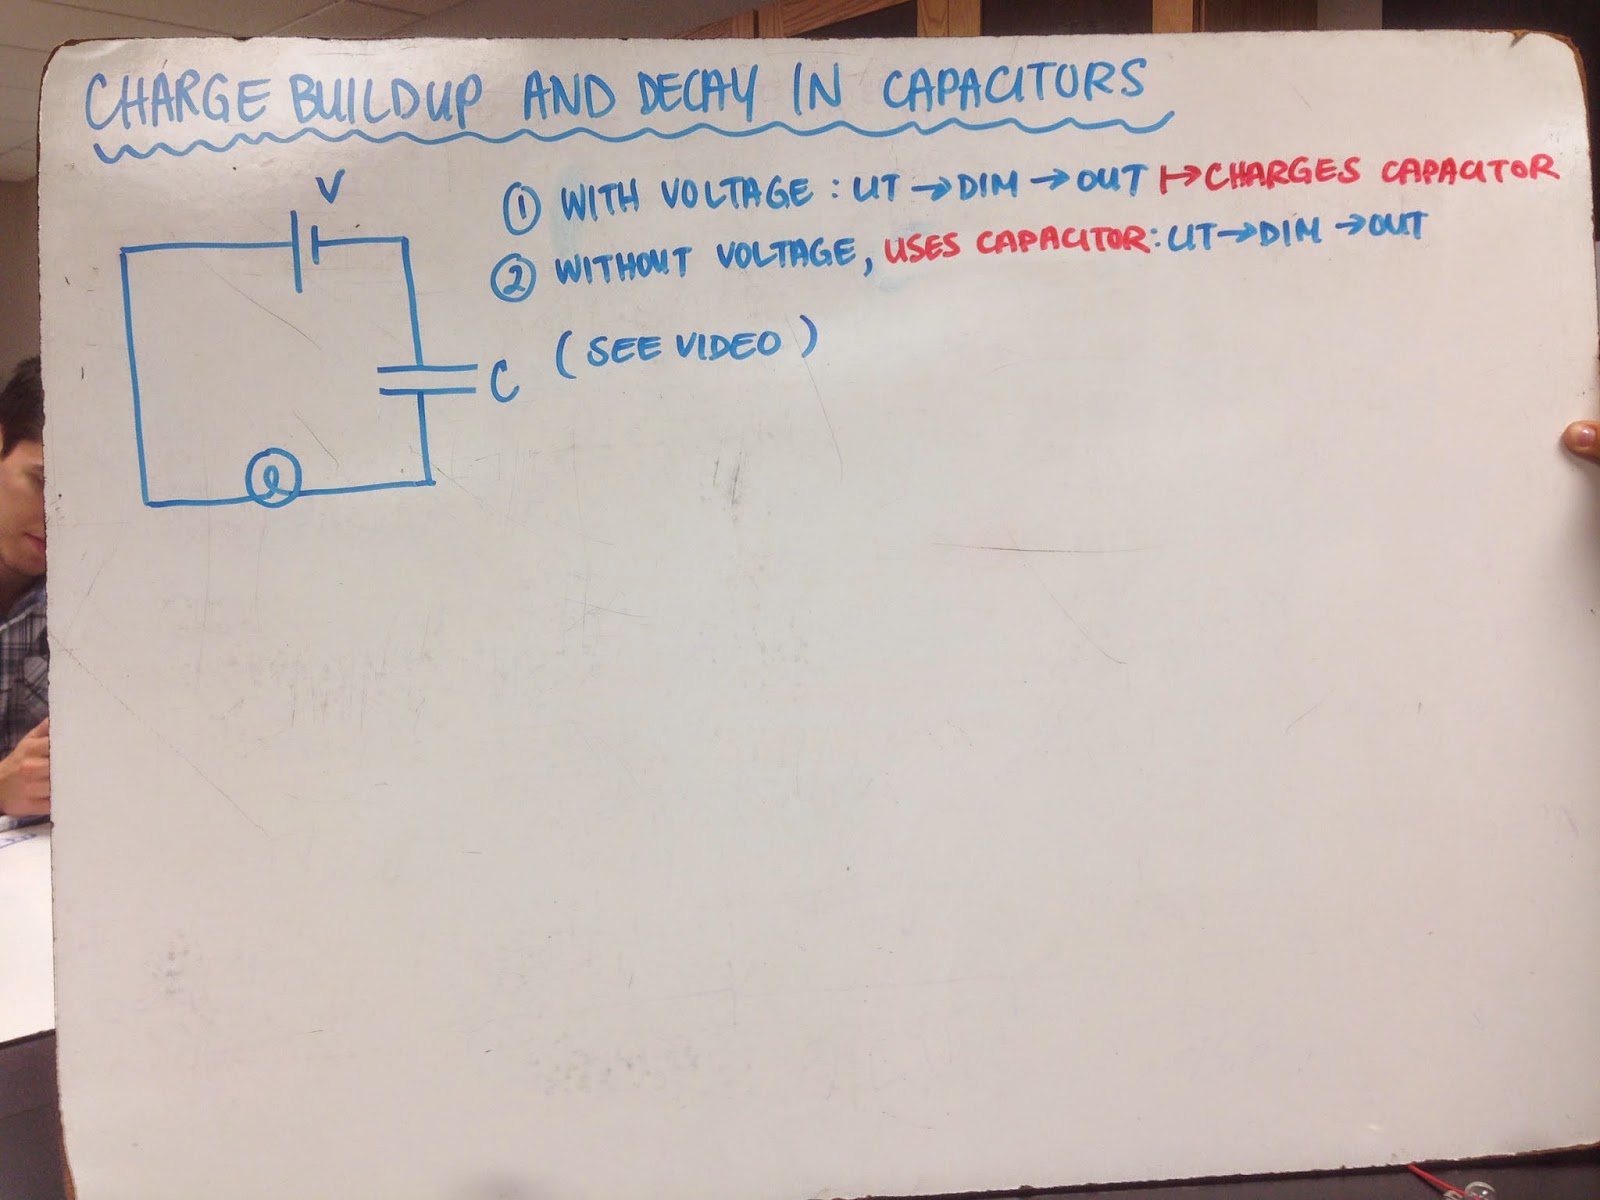 CHARGE BUILDUP AND DECAY IN CAPACITORS
V
① WITH VOLTAGE : LIT → DIM → OUT ↦ CHARGES CAPACITOR
② WITHOUT VOLTAGE, USES CAPACITOR: LIT → DIM → OUT
C
(SEE VIDEO)